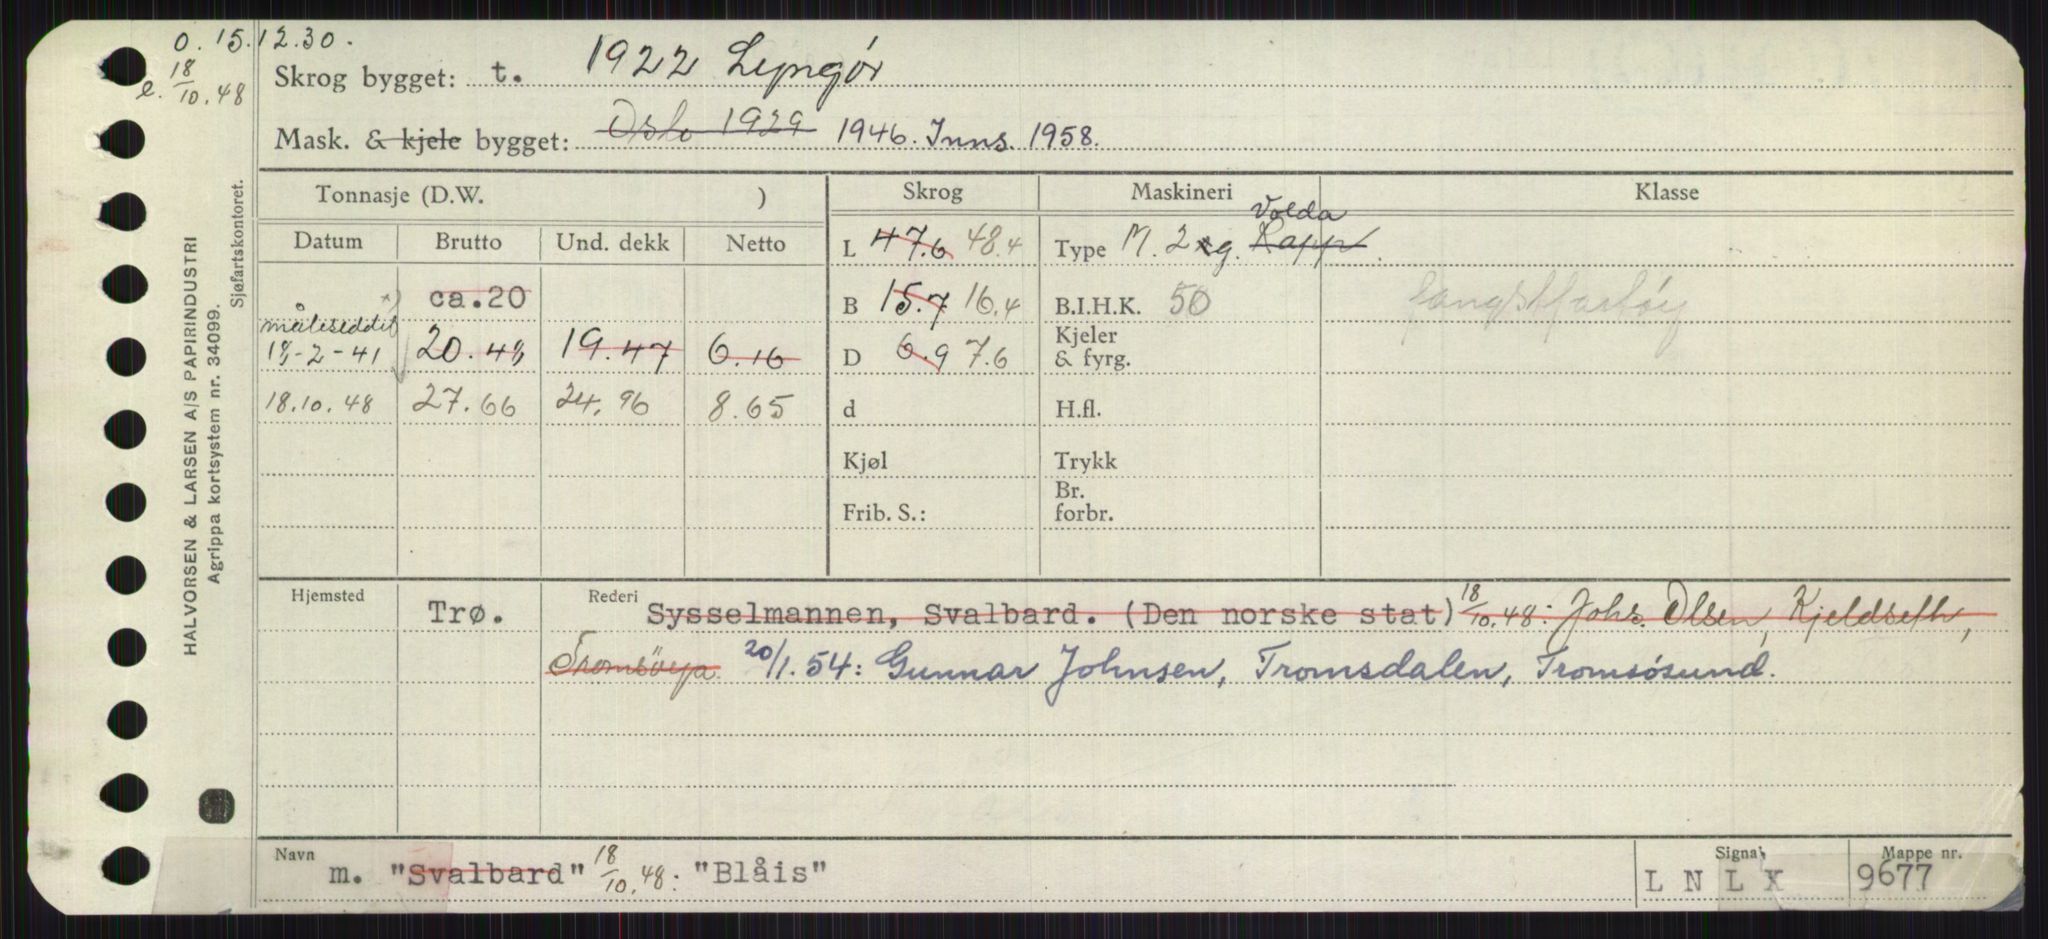 O. 15.12.30.
e. 18/10.48
Skrog bygget: t. 1922 Lyngør
Mask. & kjele bygget: Oslo 1929 1946. Inns. 1958.
Tonnasje (D.W. ) Skrog Maskineri Klasse
Datum Brutto Und. dekk Netto L 47.6 48.4 Type M. 2 sg. Rapp Volda
ca.20 B 15.7 16.4 B.I.H.K. 50 fangstfartøy
måleseddel
18-2-41 20.48 19.47 6.16 D 6.9 7.6 Kjeler & fyrg.
18.10.48 27.66 24.96 8.65 d H.fl.
Kjøl Trykk
Frib. S.: Br. forbr.
Hjemsted Trø. Rederi Sysselmannen, Svalbard. (Den norske stat) 18/10.48: Johs. Olsen, Kjeldseth,
Tromsöya. 20/1.54: Gunnar Johnsen, Tromsdalen, Tromsøsund.
Navn m. "Svalbard" 18/10.48: "Blåis" Signal L N L X Mappe nr. 9677
HALVORSEN & LARSEN A/S PAPIRINDUSTRI
Agrippa kortsystem nr. 34099.
Sjøfartskontoret.